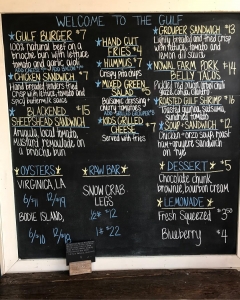 WELCOME TO THE GULF
GULF BURGER $7
100% natural beef on
a brioche bun with lettuce
tomato and garlic aioli
CHICKEN SANDWICH $7
Hand breaded tenders fried
crisp with lettuce, tomato and
spicy buttermilk sauce
BLACKENED $15
SHEEPSHEAD SANDWICH
Arugula, local tomato,
mustard remoulade on
a brioche bun
HAND CUT
FRIES $4
HUMMUS $7
Crispy pita chips
MIXED GREEN
SALAD $5
Balsamic dressing,
cherry tomatoes
KIDS GRILLED
CHEESE $7
Served with fries
GROUPER SANDWICH $13
Lightly breaded and fried crisp
with lettuce, tomato and
lemon dill sauce
NIWAL FARM PORK $14
BELLY TACOS
ROASTED GULF SHRIMP $16
SOUP + SANDWICH $12
on rye
OYSTERS
VIRGINICA, LA
6/$11 12/$19
BODIE ISLAND,
6/$11 12/$19
RAW BAR
SNOW CRAB
LEGS
1/2# $12
1# $22
DESSERT $5
Chocolate chunk
brownie, bourbon cream
LEMONADE
Fresh Squeezed $3.50
Blueberry $4